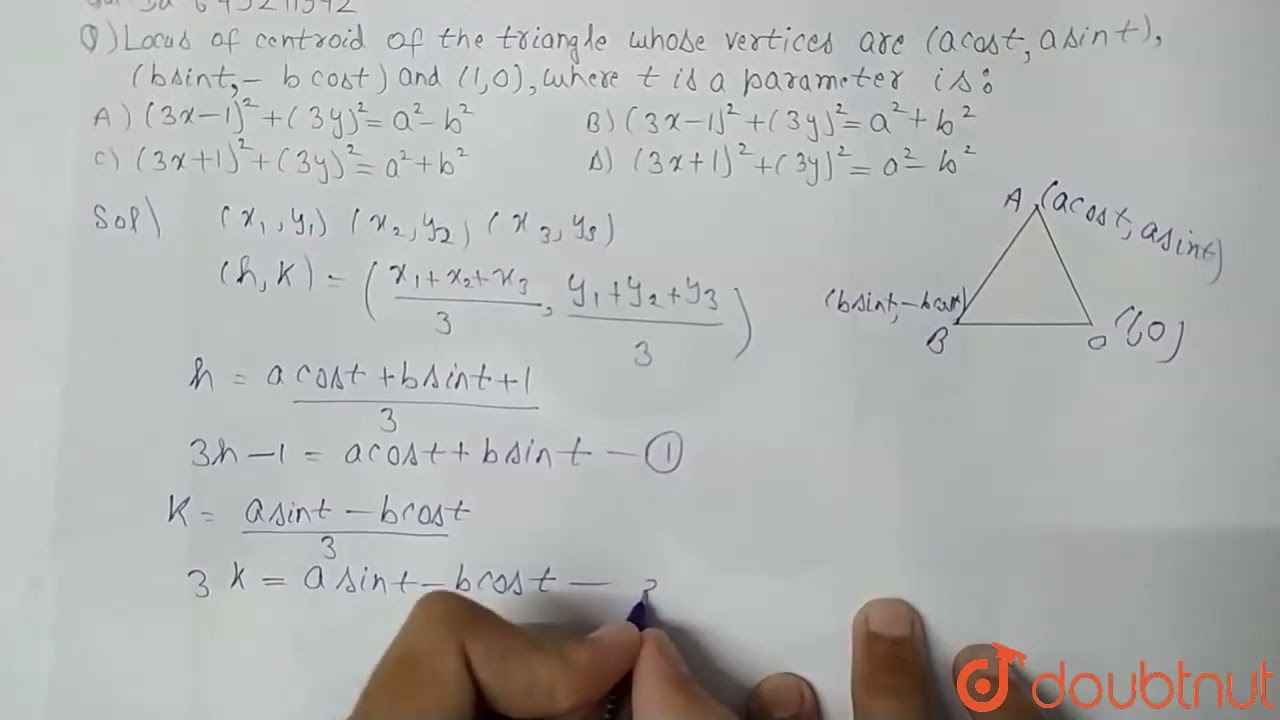 Q) Locus of centroid of the triangle whose vertices are (acost, asint),
(bsint, - b cost) and (1,0), where t is a parameter is:
A) (3x-1)² + (3y)² = a² - b²
B) (3x-1)² + (3y)² = a² + b²
C) (3x+1)² + (3y)² = a² + b²
D) (3x+1)² + (3y)² = a² - b²
Sol\ (x₁, y₁) (x₂, y₂) (x₃, y₃)
(h, k) = ( x₁+x₂+x₃ / 3 , y₁+y₂+y₃ / 3 )
h = acost + bsint + 1 / 3
3h - 1 = acost + bsint - ①
K = asint - bcost / 3
3 K = asint - bcost -
A (acost, asint)
(bsint, -bcost)
B
C (1,0)
doubtnut